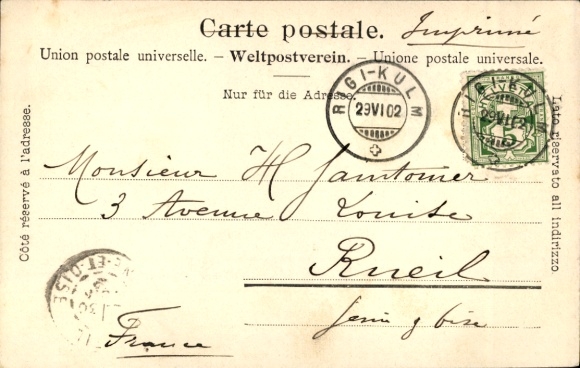 Carte postale. Imprimé
Union postale universelle. – Weltpostverein. – Unione postale universale.
Nur für die Adresse.
RIGI-KULM
29VI02
RIGI-KULM
29VI02
HELVETIA
5
Côté réservé à l'adresse.
Lato riservato all indirizzo.
Monsieur H Jamtomer
3 Avenue Louise
Rueil
Seine & Oise
ET-OISE
France